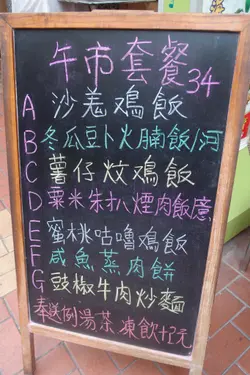 午市套餐34
A 沙羌鳮飯
B 冬瓜豆卜火腩飯/河
C 薯仔炆鳮飯
D 粟米朱扒煙肉飯意
E 蜜桃咕嚕鳮飯
F 咸魚蒸肉餅
G 豉椒牛肉炒麵
奉送例湯茶 凍飲+2元